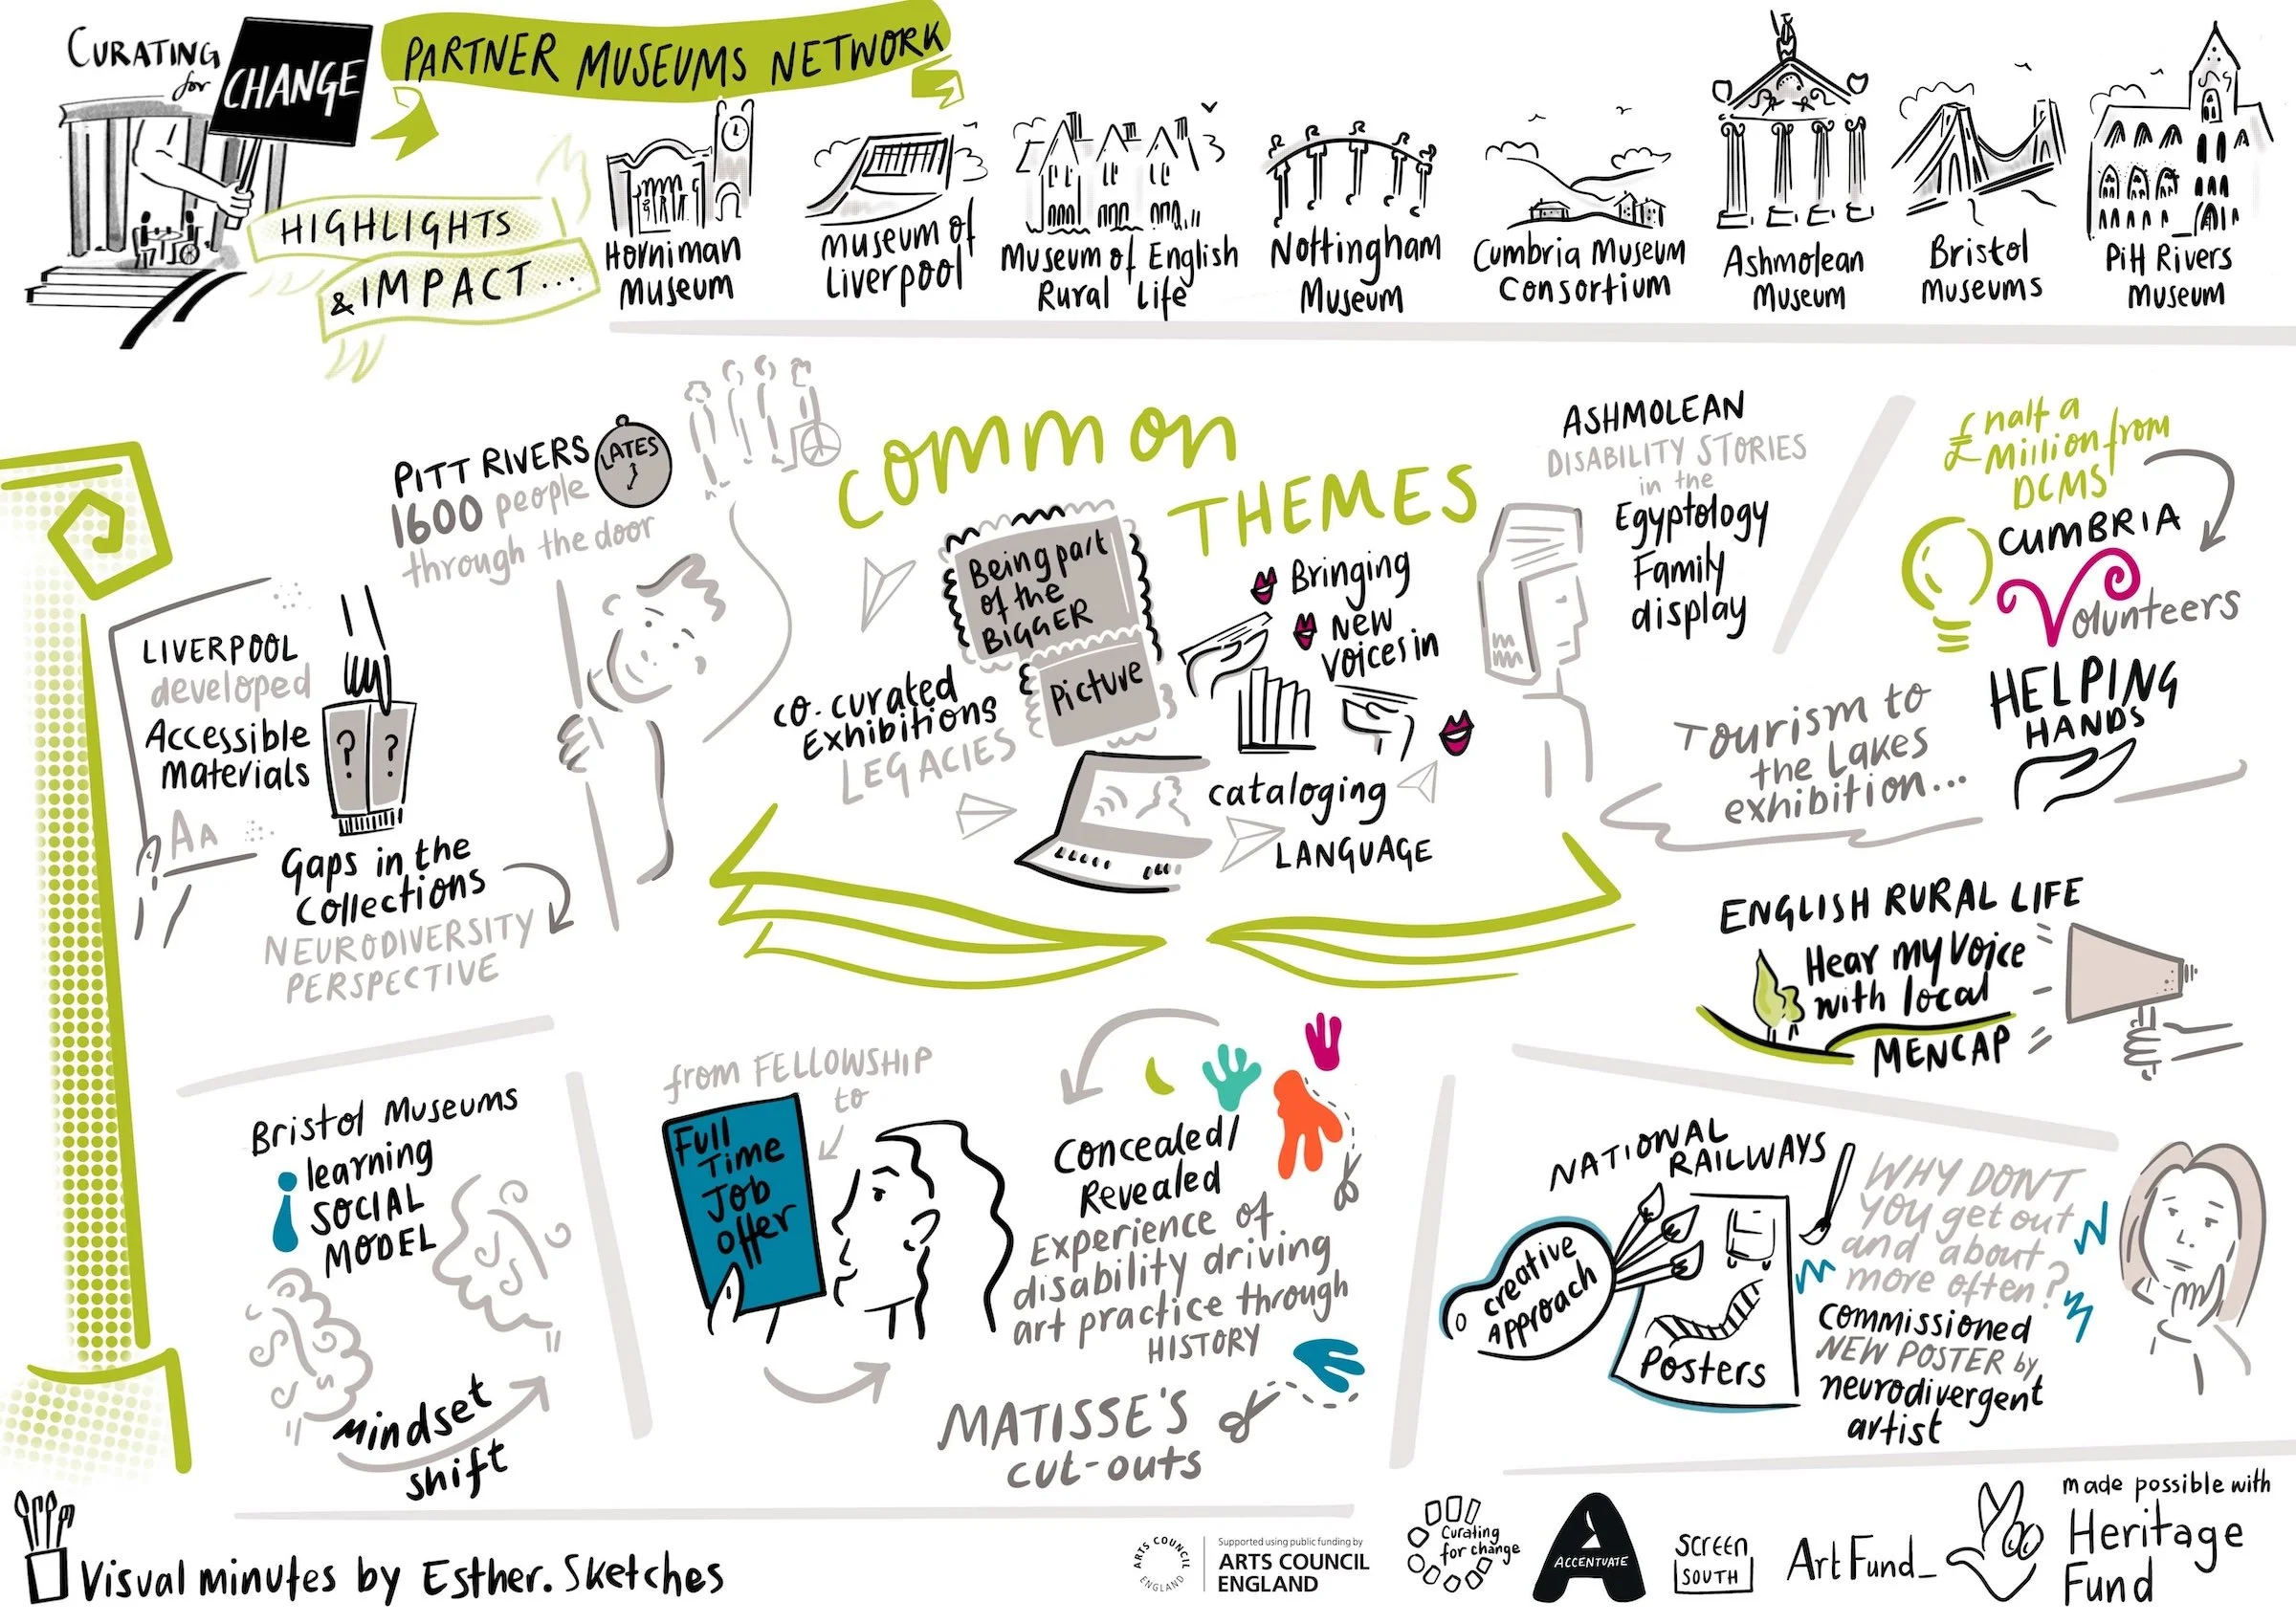 CURATING
for
CHANGE
PARTNER MUSEUMS NETWORK
HIGHLIGHTS
& IMPACT...
Horniman
Museum
Museum of
Liverpool
Museum of English
Rural Life
Nottingham
Museum
Cumbria Museum
Consortium
Ashmolean
Museum
Bristol
Museums
Pitt Rivers
Museum
PITT RIVERS
LATES
1600 people
through the door
LIVERPOOL
developed
Accessible
Materials
AA
? ?
Gaps in the
Collections
NEURODIVERSITY
PERSPECTIVE
COMMON
THEMES
Being part
of the
BIGGER
Picture
Bringing
New
Voices in
co-curated
Exhibitions
LEGACIES
cataloging
LANGUAGE
ASHMOLEAN
DISABILITY STORIES
in the
Egyptology
Family
display
£ half a
Million from
DCMS
CUMBRIA
Volunteers
HELPING
HANDS
Tourism to
the Lakes
exhibition...
ENGLISH RURAL LIFE
Hear my Voice
with local
MENCAP
Bristol Museums
learning
SOCIAL
MODEL
Mindset
shift
from FELLOWSHIP
to
Full
Time
Job
Offer
Concealed/
Revealed
Experience of
disability driving
art practice through
HISTORY
MATISSE'S
cut-outs
NATIONAL
RAILWAYS
creative
Approach
Posters
WHY DON'T
YOU get out
and about
more often?
Commissioned
NEW POSTER by
neurodivergent
artist
Visual minutes by Esther. Sketches
ARTS COUNCIL
ENGLAND
Supported using public funding by
ARTS COUNCIL
ENGLAND
Curating
for change
A
ACCENTUATE
SCREEN
SOUTH
ArtFund_
made possible with
Heritage
Fund